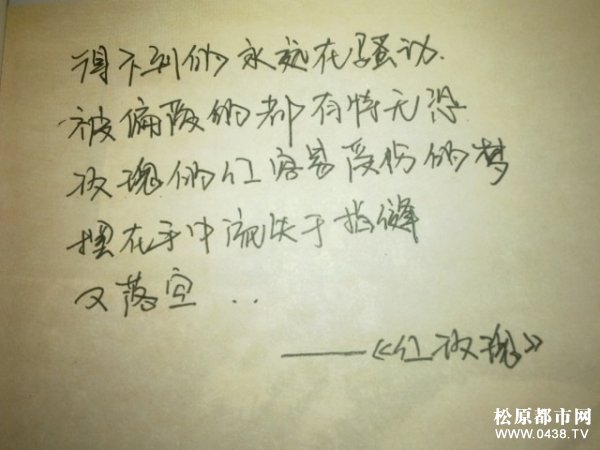 得不到的永远在骚动.
被偏爱的都有恃无恐
玫瑰的红容易受伤的梦
握在手中流失于指缝
又落空 . .
——《红玫瑰》
松原都市网
WWW.0438.TV